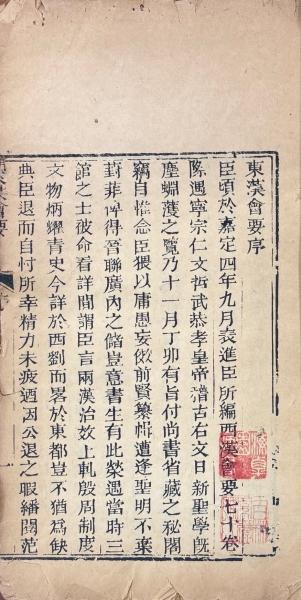 東漢會要序
臣頃於嘉定四年九月表進臣所編西漢會要七十卷
際遇寧宗仁文哲武恭孝皇帝稽古右文日新聖學旣
塵蜵蠖之覽乃十一月丁卯有旨付尚書省藏之秘閣
竊自惟念臣猥以庸愚妄倣前賢纂輯遭逢聖明不棄
葑菲俾得晉聯廣內之儲豈意書生有此榮遇當時三
館之士被命看詳間謂臣言兩漢治效上軋殷周制度
文物炳耀青史今詳於西劉而畧於東都豈不猶爲缺
典臣退而自忖所幸精力未疲迺因公退之暇繙閱范